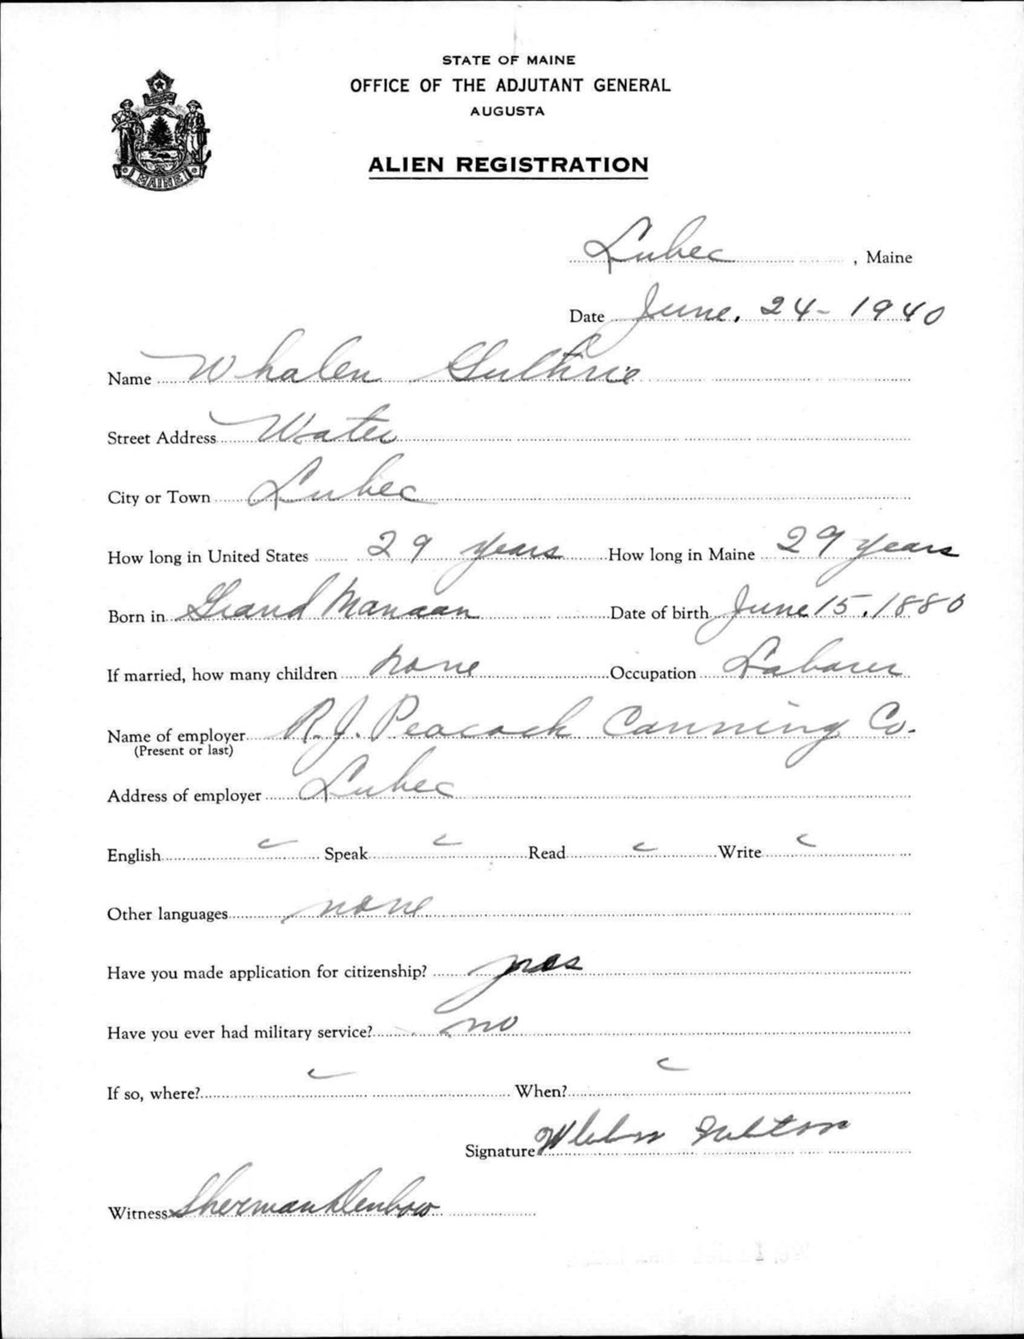 STATE OF MAINE
OFFICE OF THE ADJUTANT GENERAL
AUGUSTA
MAINE
ALIEN REGISTRATION
Lubec, Maine
Date June, 24-1940
Name Whalen Guthrie
Street Address Water
City or Town Lubec
How long in United States 29 years How long in Maine 29 years
Born in Grand Manaan Date of birth June 15, 1880
If married, how many children none Occupation Laborer
Name of employer R.J. Peacock Canning Co.
(Present or last)
Address of employer Lubec
English Speak Read Write
Other languages none
Have you made application for citizenship? yes
Have you ever had military service? no
If so, where? When?
Signature
Witness Sherman Denbow